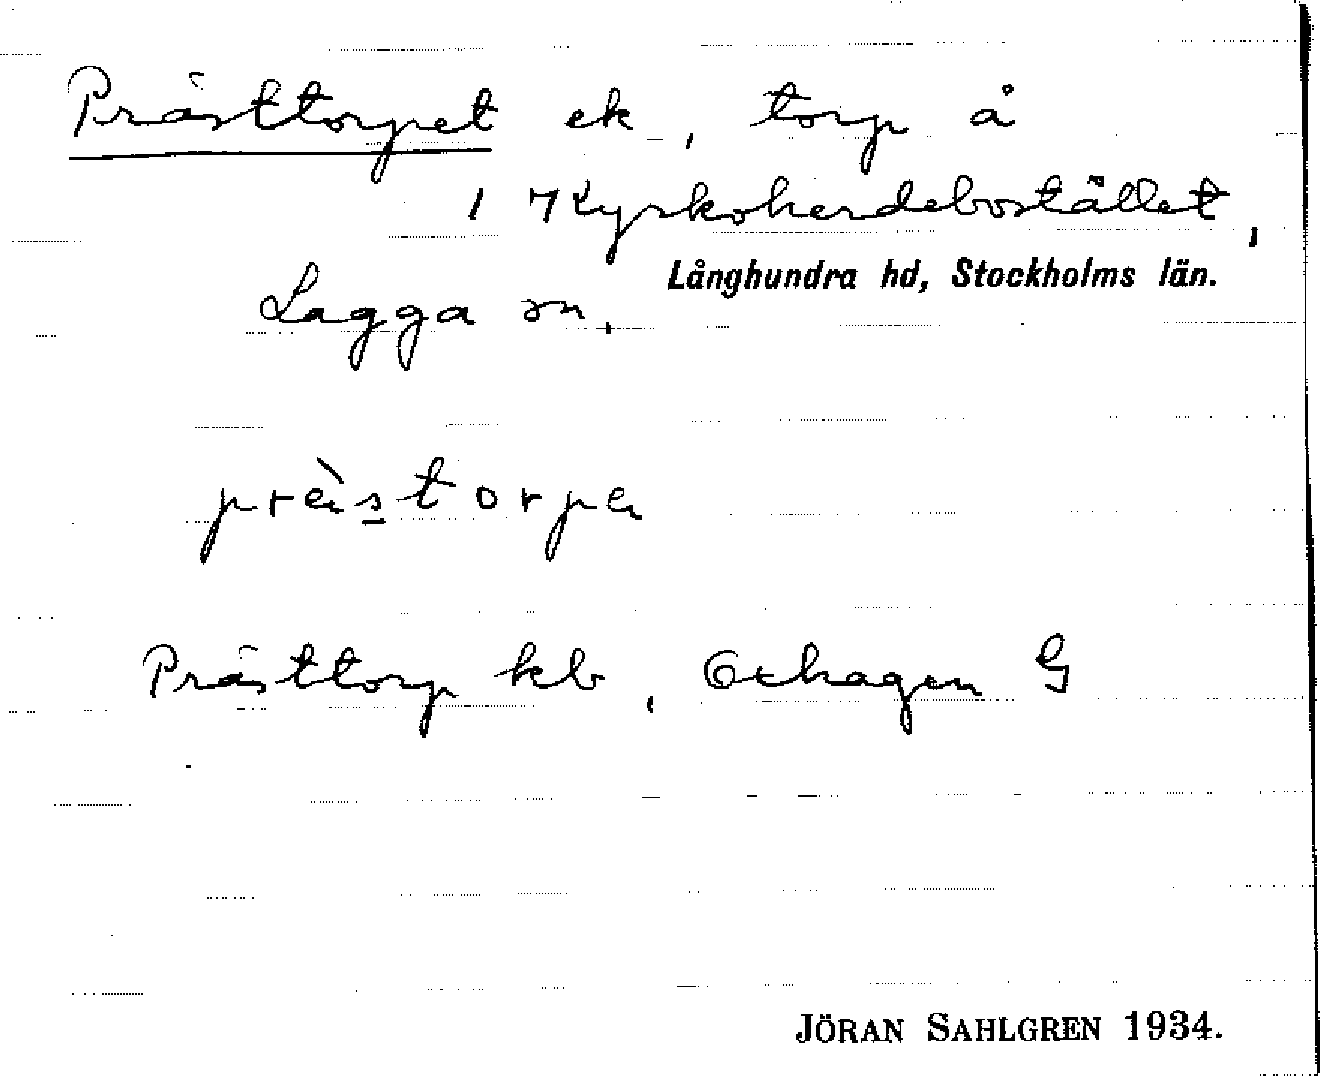 Prästtorpet ek, torp å
1 Kyrkoherdebostället,
Långhundra hd, Stockholms län.
Lagga sn.
prästorpa
Prästtorp kb, Oxhagen G
JÖRAN SAHLGREN 1934.